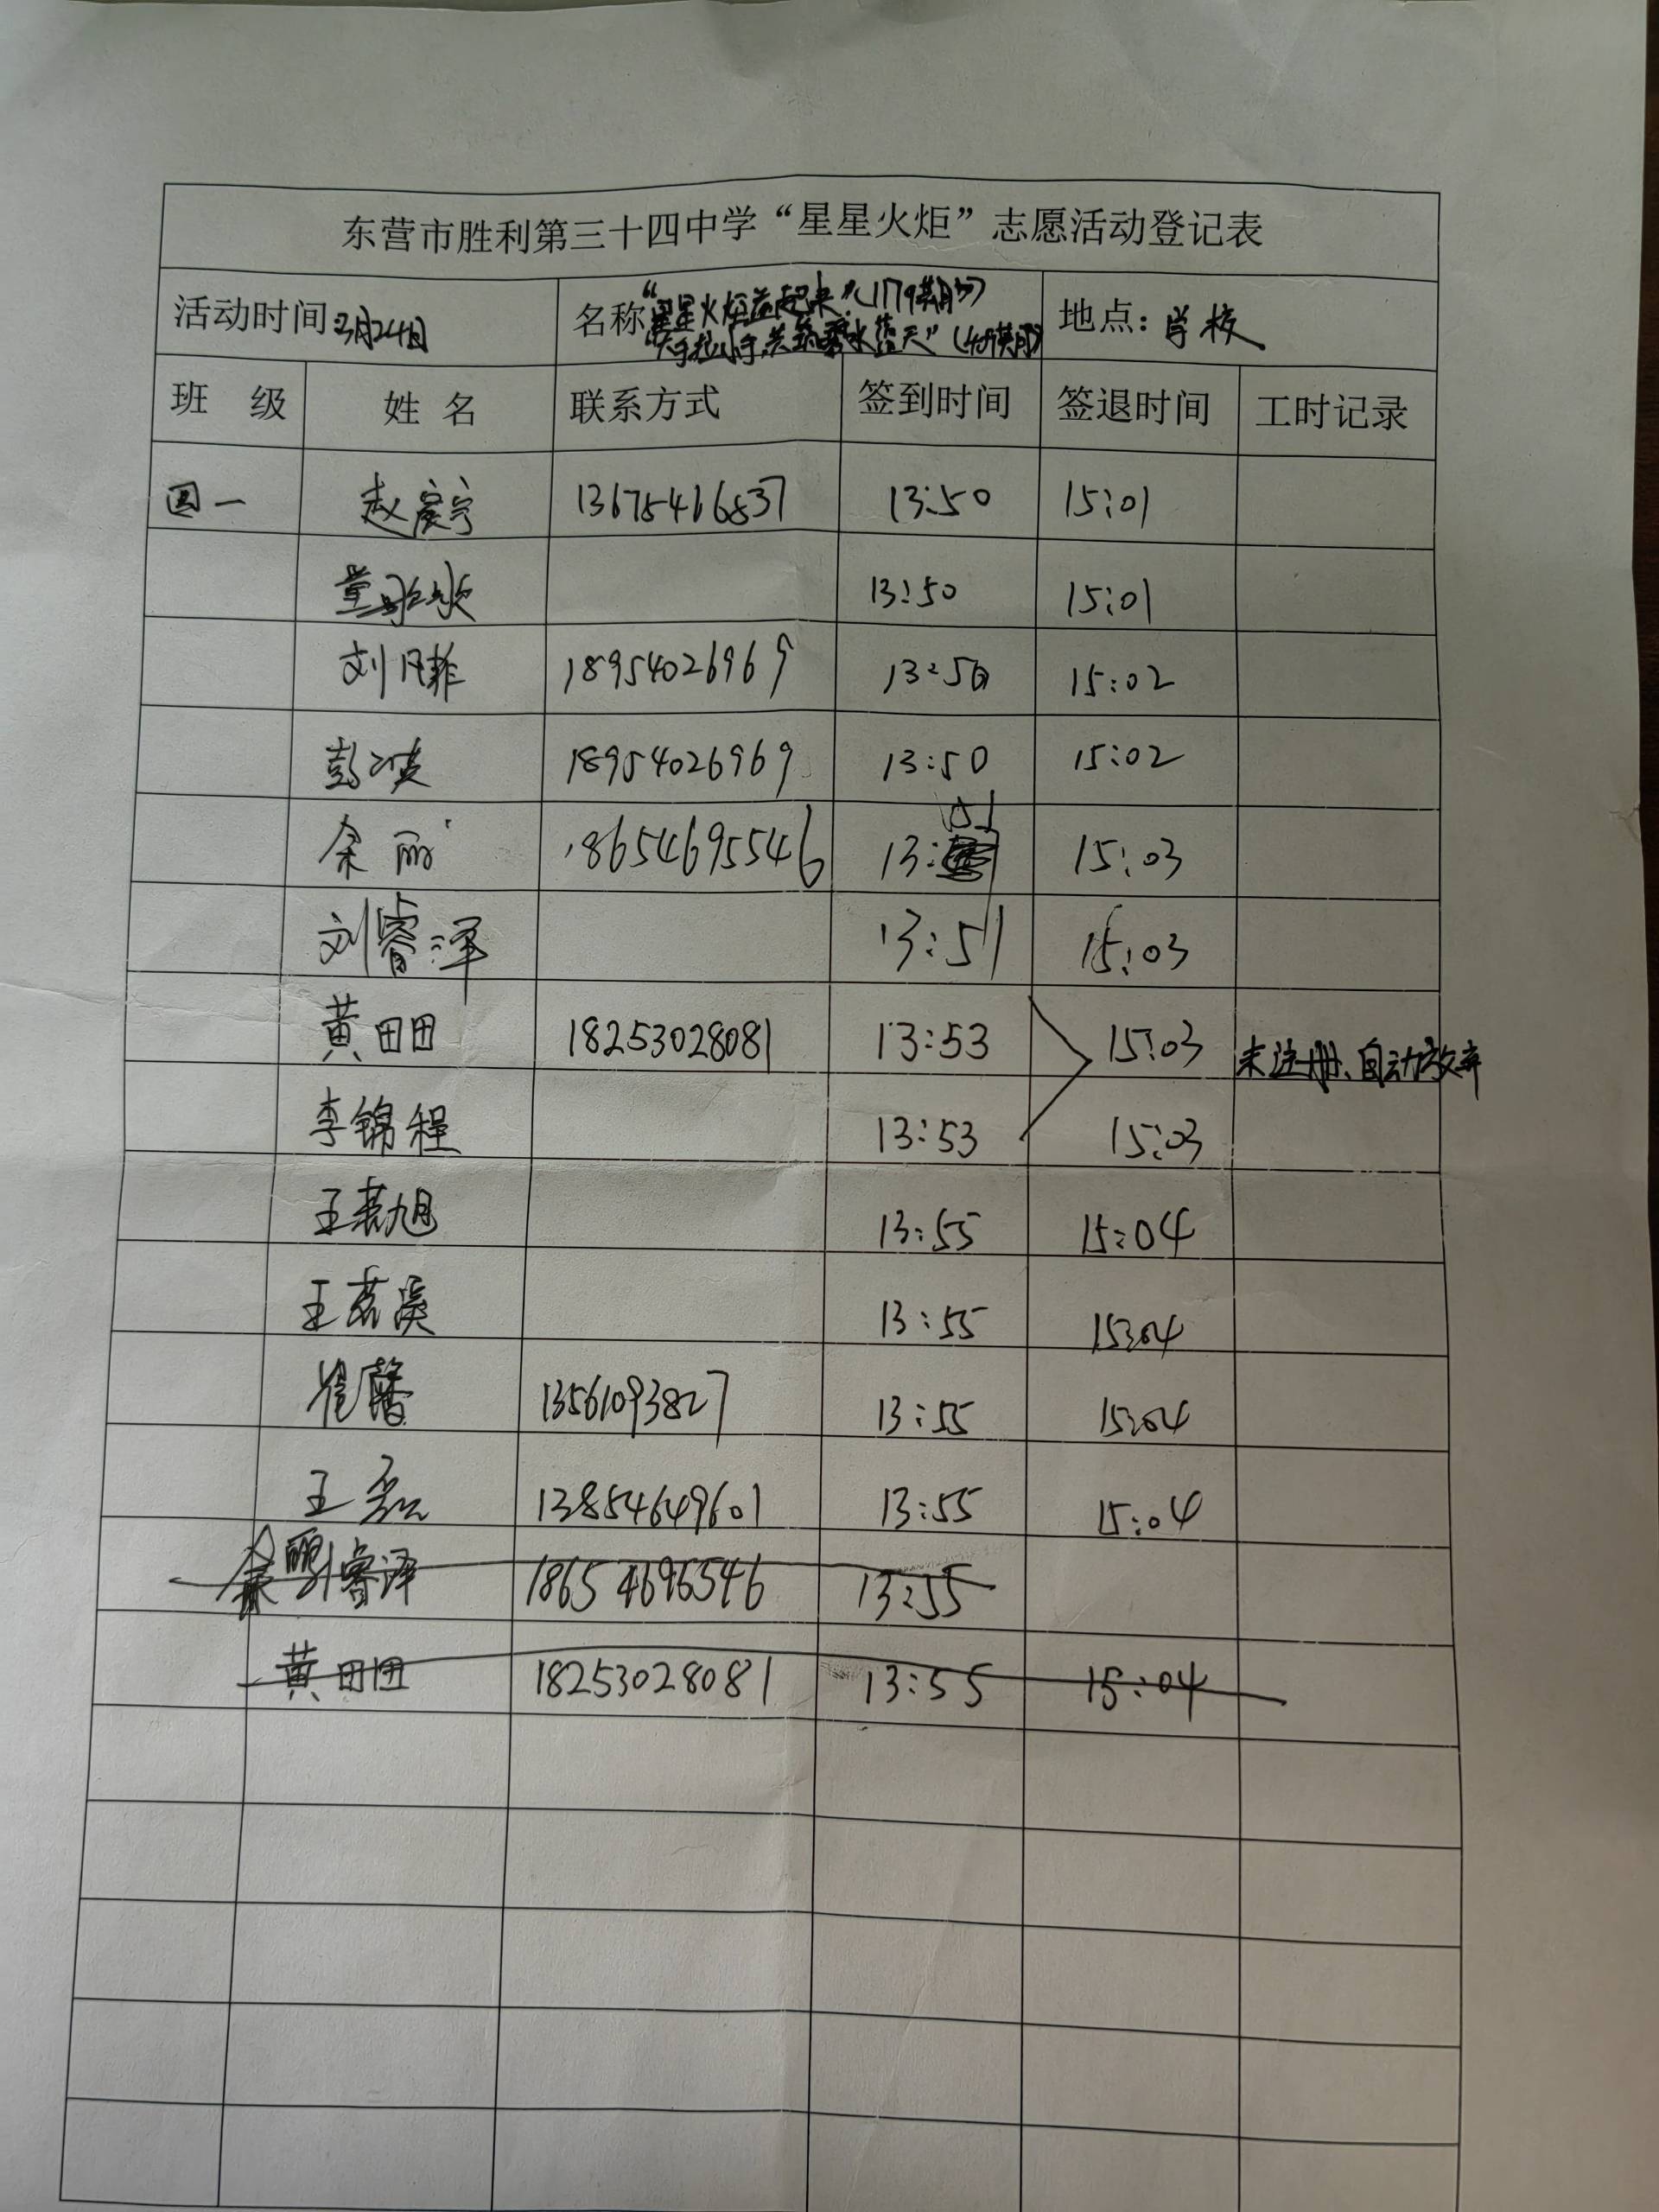 东营市胜利第三十四中学“星星火炬”志愿活动登记表
活动时间:3月24日 名称 “星星火炬益起来”(179期) 地点：学校
“大手拉小手,共筑碧水蓝天”
班 级 姓 名 联系方式 签到时间 签退时间 工时记录
四一 赵宸宇 13675466837 13:50 15:01
13:50 15:01
刘凡菲 18954026969 13:50 15:02
彭 18954026969 13:50 15:02
余丽 18654695546 13:51 15:03
刘睿泽 13:51 15:03
黄田田 18253028081 13:53 15:03 未注册、自动放弃
李锦程 13:53 15:03
王若旭 13:55 15:04
王若溪 13:55 15:04
崔馨 13561093827 13:55 15:04
王磊 13854649601 13:55 15:04
睿泽 18654696546 13:55
黄田田 18253028081 13:55 15:04